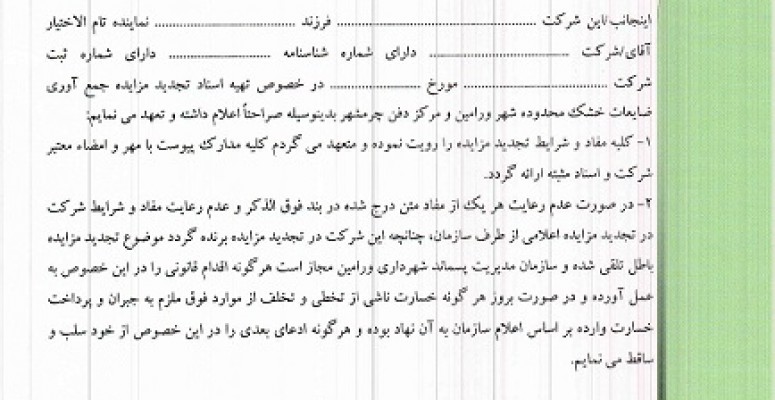 اینجانب/این شرکت ........................ فرزند ........................ نماینده تام الاختیار
آقای/شرکت ........................ دارای شماره شناسنامه ........................ دارای شماره ثبت
شرکت ........................ مورخ ........................ در خصوص تهیه اسناد تجدید مزایده جمع آوری
ضایعات خشک محدوده شهر ورامین و مرکز دفن چرمشهر بدینوسیله صراحتاً اعلام داشته و تعهد می نمایم:
۱- کلیه مفاد و شرایط تجدید مزایده را رویت نموده و متعهد می گردم کلیه مدارک پیوست با مهر و امضاء معتبر
شرکت و اسناد مثبته ارائه گردد.
۲- در صورت عدم رعایت هر یک از مفاد متن درج شده در بند فوق الذکر و عدم رعایت مفاد و شرایط شرکت
در تجدید مزایده اعلامی از طرف سازمان، چنانچه این شرکت در تجدید مزایده برنده گردد موضوع تجدید مزایده
باطل تلقی شده و سازمان مدیریت پسماند شهرداری ورامین مجاز است هرگونه اقدام قانونی را در این خصوص به
عمل آورده و در صورت بروز هر گونه خسارت ناشی از تخطی و تخلف از موارد فوق ملزم به جبران و پرداخت
خسارت وارده بر اساس اعلام سازمان به آن نهاد بوده و هرگونه ادعای بعدی را در این خصوص از خود سلب و
ساقط می نمایم.